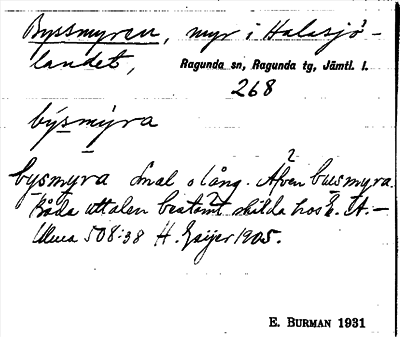 Byssmyren, myr i Halasjö-
landet,
Ragunda sn, Ragunda tg, Jämtl. l.
268
býsmýra
bysmyra smal o lång. Även busmyra.
Båda uttalen bestämt skilda hos
508:38 H. Geijer 1905.
E. BURMAN 1931